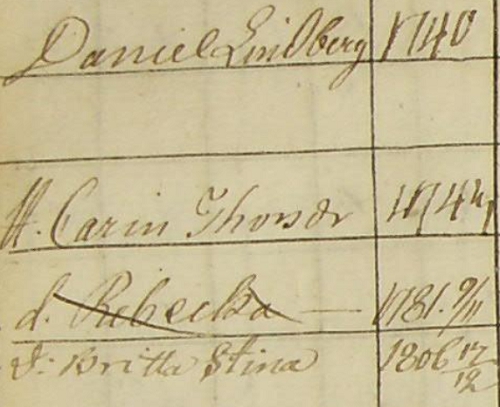 Daniel Lindberg 1740
H. Carin Thorsdr
d. Rebecka — 1781. 9/11
d: Britta Stina 1806 17/12